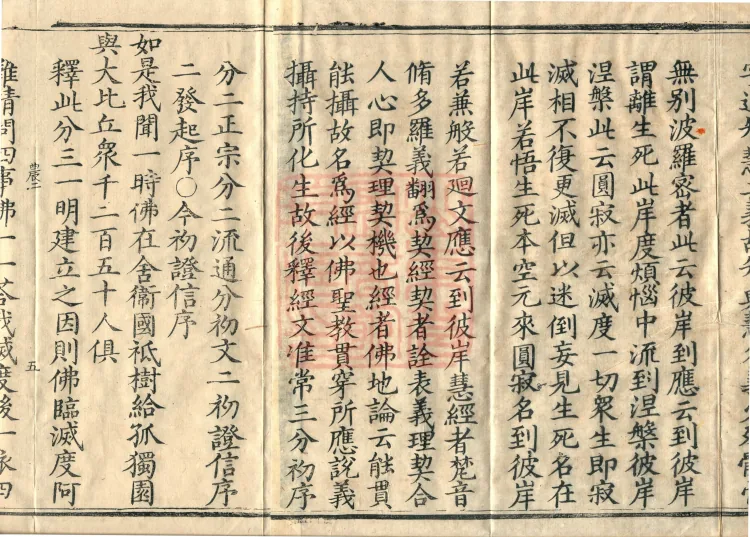 無別波羅密者此云彼岸到應云到彼岸
謂離生死此岸度煩惱中流到涅槃彼岸
涅槃此云圓寂亦云滅度一切衆生即寂
滅相不復更滅但以迷倒妄見生死名在
此岸若悟生死本空元來圓寂名到彼岸
若兼般若廻文應云到彼岸慧經者梵音
脩多羅義翻爲契經契者詮表義理契合
人心即契理契機也經者佛地論云能貫
能攝故名爲經以佛聖教貫穿所應說義
攝持所化生故後釋經文准常三分初序
分二正宗分二流通分初文二初證信序
二發起序〇今初證信序
如是我聞一時佛在舍衛國祇樹給孤獨園
與大比丘衆千二百五十人俱
釋此分三一明建立之因則佛臨滅度阿
農二 五
難請問四事佛一一答我滅度後一依四